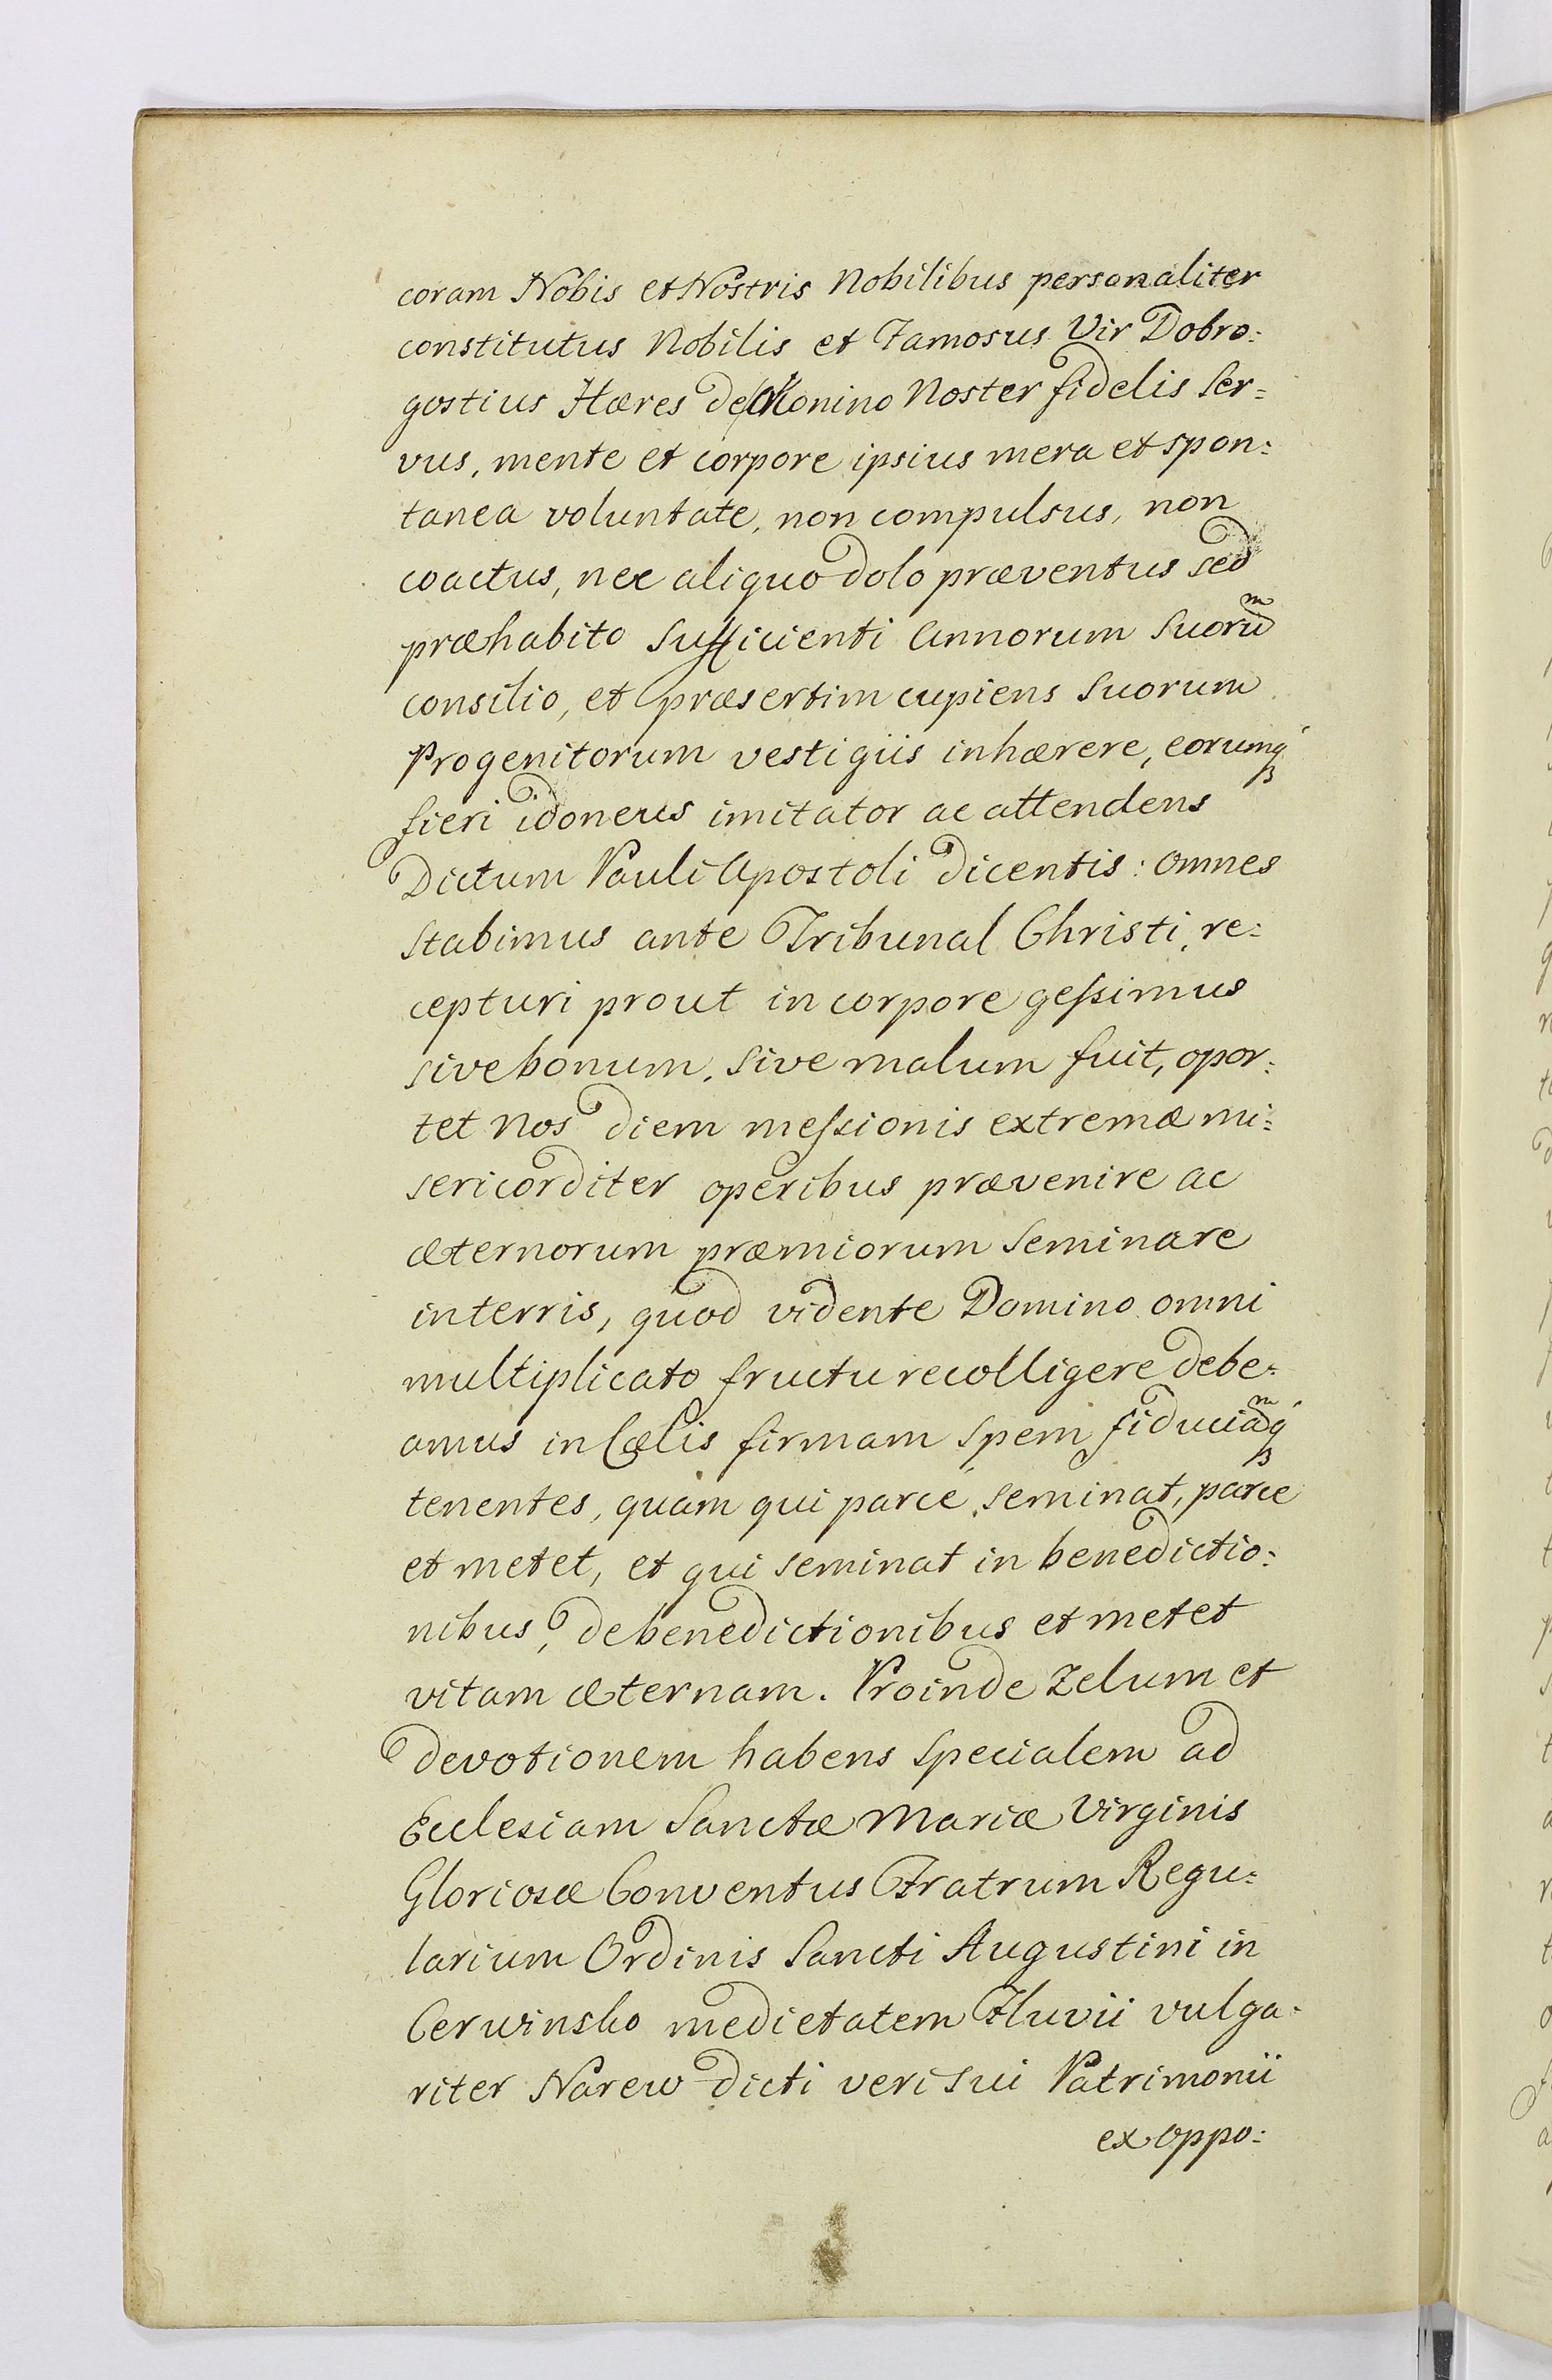 coram Nobis et Nostris Nobilibus personaliter
constitutus Nobilis et Famosus Vir Dobro:
gostius Hæres de Nonino Noster fidelis Ser=
vus, mente et corpore ipsius mera et spon:
tanea voluntate, non compulsus, non
coactus, nec aliquo dolo præventus sed
præhabito Sufficienti Annorum Suorum
consilio, et præsertim cupiens Suorum
Progenitorum vestigiis inhærere, eorumq
fieri idoneus imitator ac attendens
Dictum Pauli Apostoli dicentis: omnes
Stabimus ante Tribunal Christi, re:
cepturi prout in corpore geſsimus
sive bonum, Sive malum fuit, opor:
tet Nos diem meſsionis extremæ mi:
sericorditer operibus prævenire ac
æternorum præmiorum Seminare
in terris, quod vidente Domino omni
multiplicato fructu recolligere debe=
amus in Cælis firmam Spem fiduciamq
tenentes, quam qui parce seminat, parce
et metet, et qui seminat in benedictio:
nibus, de benedictionibus et metet
vitam æternam. Proinde Zelum et
devotionem habens Specialem ad
Ecclesiam Sanctæ Mariæ Virginis
Gloriosæ Conventus Fratrum Regu=
larium Ordinis Sancti Augustini in
Cerwinsko medietatem Fluvii vulga=
riter Narew dicti veri sui Patrimonii
ex oppo: